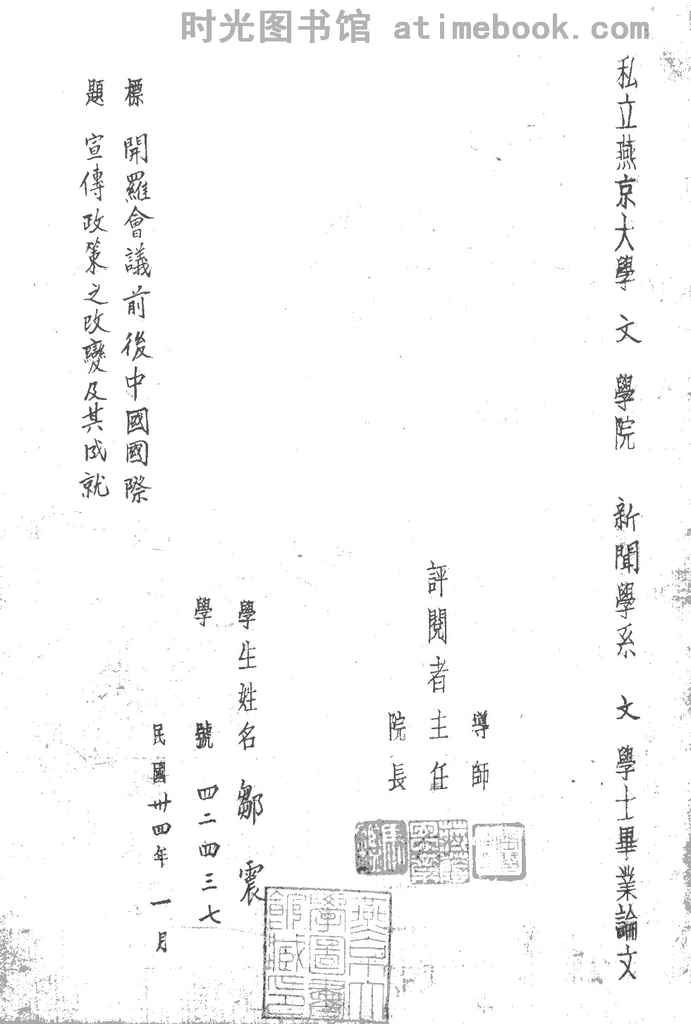 时光图书馆 atimebook.com
私立燕京大學 文 學院 新聞學系 文 學士畢業論文
導師
評閱者主任
院長
學生姓名 鄒震
學 號 四二四三七
民國卅四年一月
標 開羅會議前後中國國際
題 宣傳政策之改變及其成就
燕京大
學圖書
館藏印